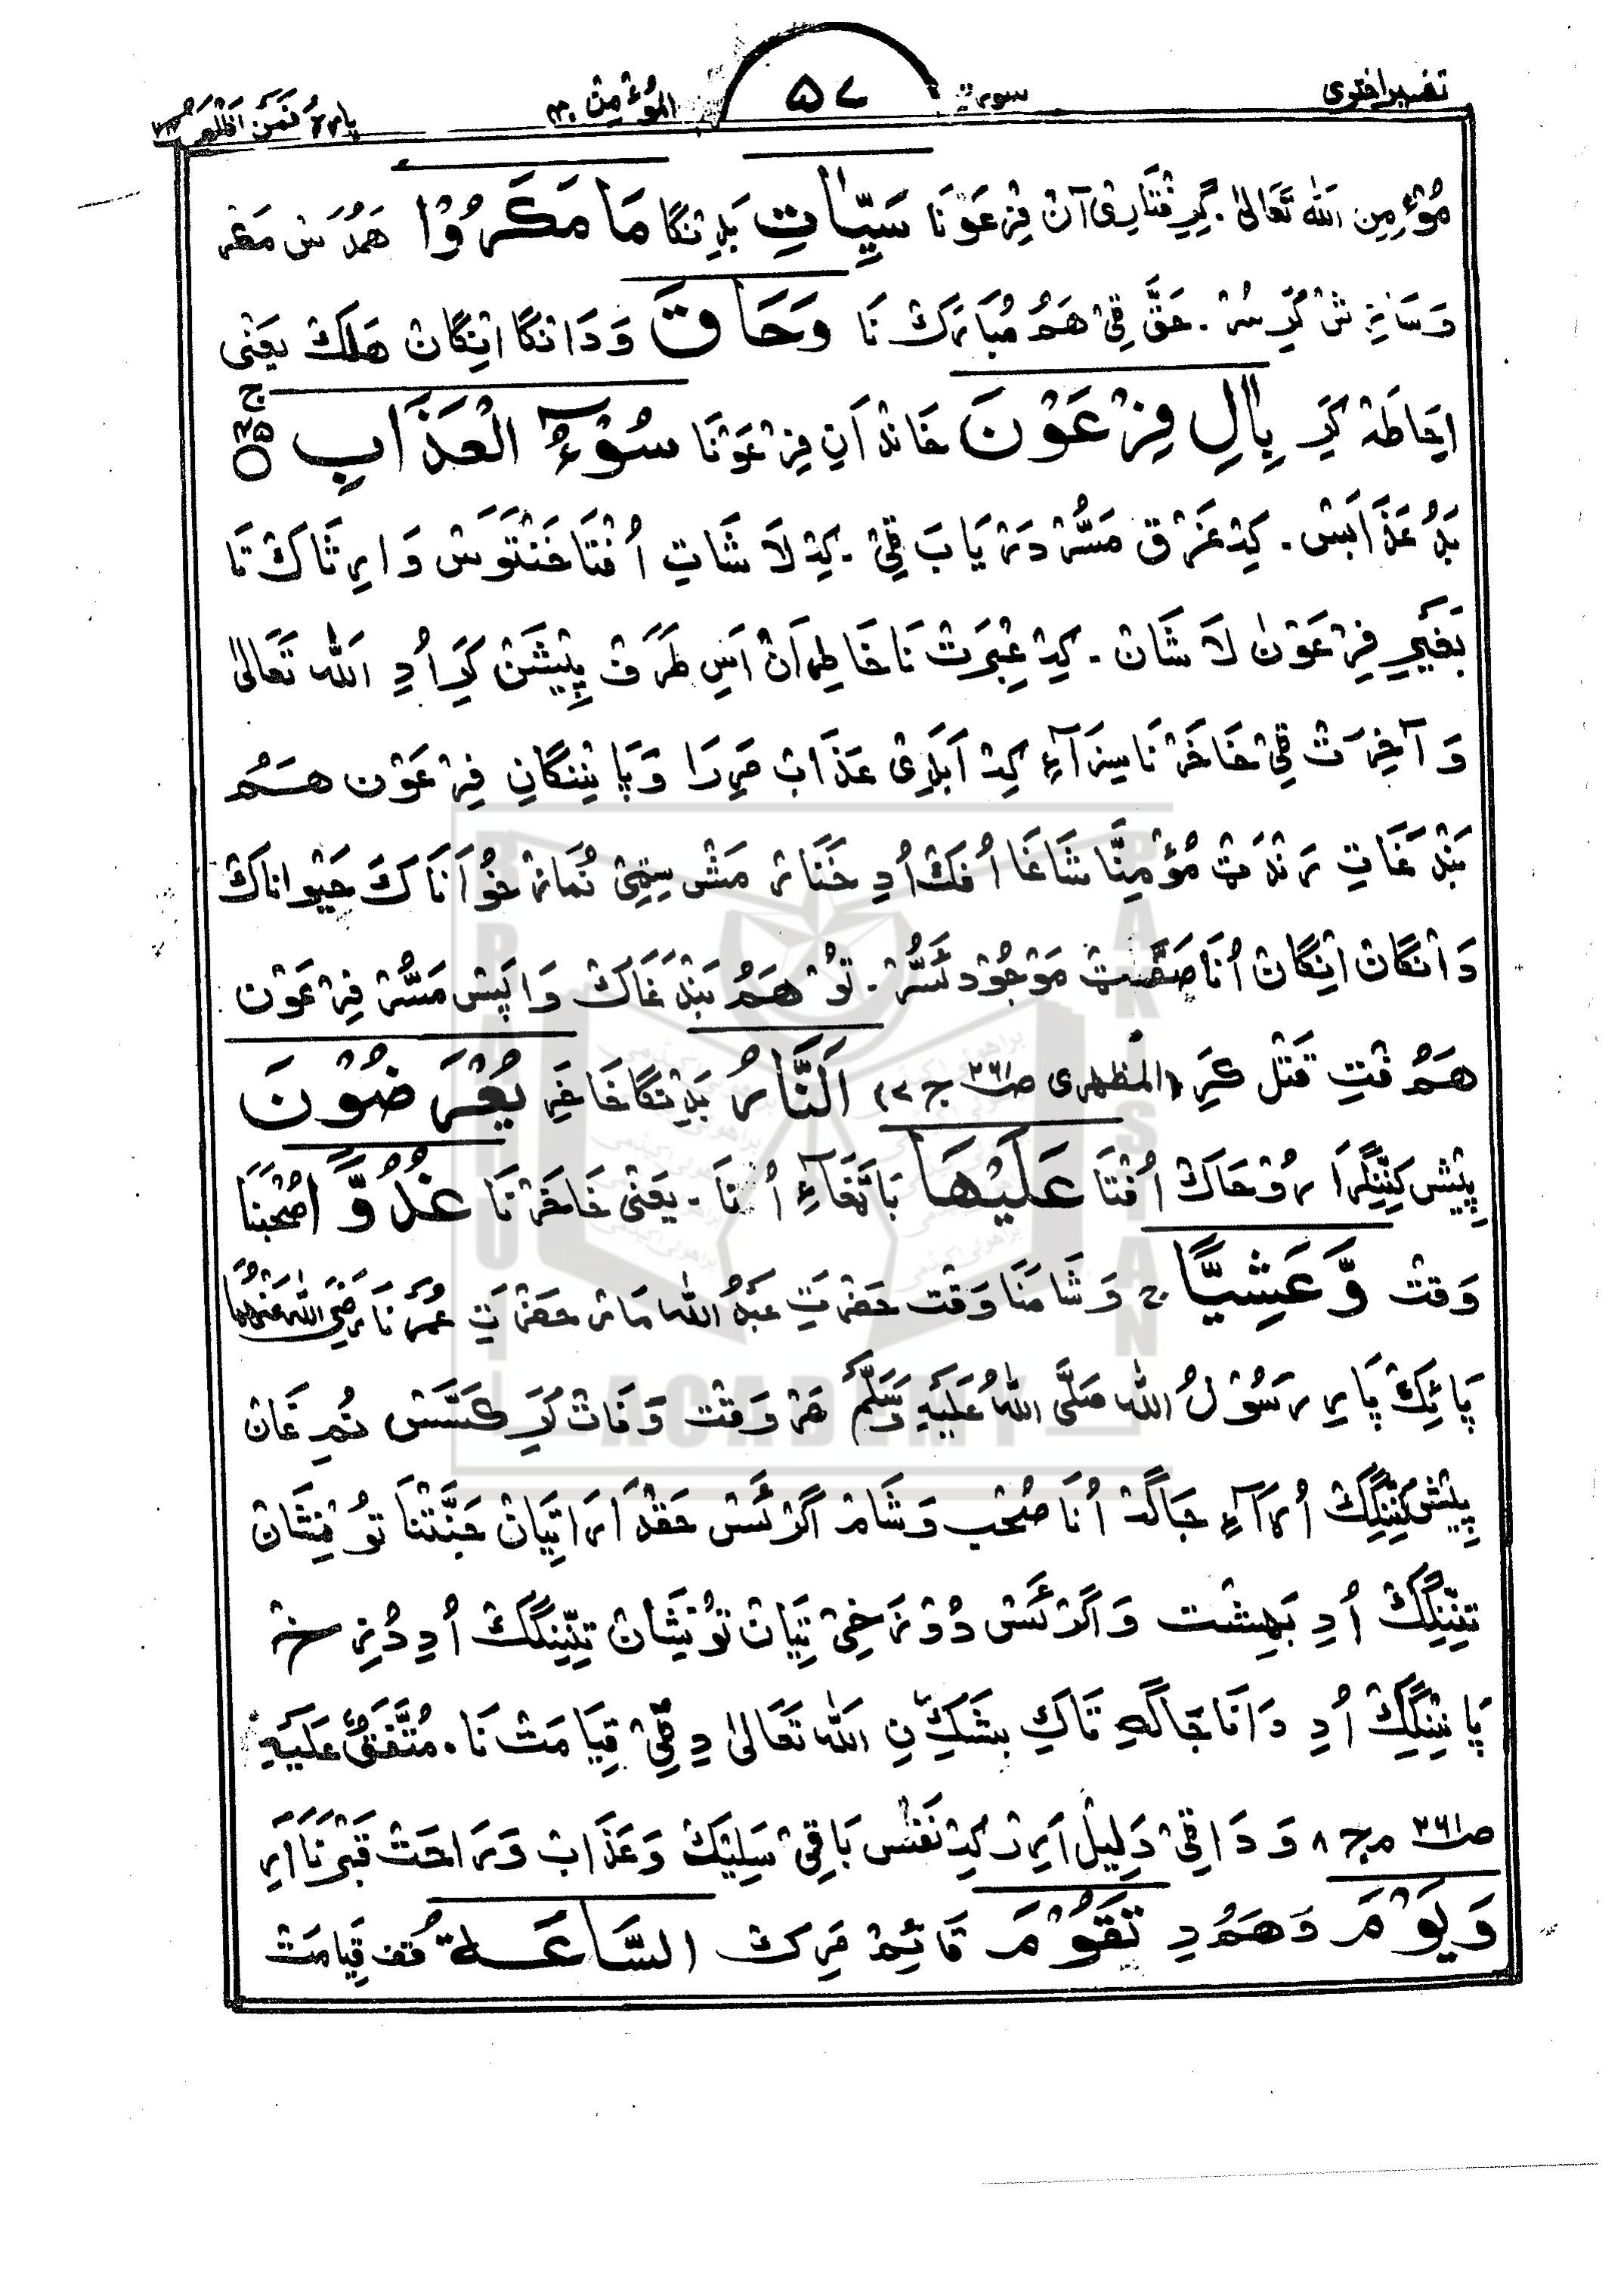 تفسیر اختری سورة ۵۷ المؤمن ۴۰ پاره فَمَنْ اَظْلَمُ ۲۴
مُؤمِن اللہ تَعَالیٰ. گِرِفْتَارِی آن فِرْعَوْنَا سَيِّاٰتِ بَدِنْگا مَا مَكَرُوْا هَمُدُس مَكر
وَسَازِش كَرِسُر. حَقَّ قِیْ هَمُ مُبَارَكْ نَا وَحَاقَ وَدَانْگا اِنْگان هَلك يَعْنِی
اِحَاطَہ کرِ بِاٰلِ فِرْعَوْنَ خَانْدَانِ فِرْعَوْنَا سُوْٓءُ الْعَذَابِ ۴۵ ج
بَدُ عَذَابَس. کِہ غَرْق مَسُّر دَرْيَابَ قِیْ. کِہ لَاشَاتِ اُفْتَا خَنْتَوَس وَارِثَاكْ تَا
بَغَيرِ فِرْعَوْن لَاشَان. کِہ عِبْرَتْ نَا خَاطِرَانْ اَسِ طَرَف پِيْشَن کَرِ اُدِ اَللہ تَعَالیٰ
وَآخِرَتْ قِیْ خَاخَرْ نَا سِزَآءِ کِہ اَبَدِیْ عَذَابْ مَرِرَا وَپَانِنْگانِ فِرْعَوْن هَمُ
بَنْدَغَاتِ رَنْدَٹْ مُؤْمِنَّا شَاغَا اُفَكْ اُدِ خَنَار مَش سِيّئِیْ نُمَازْ خُوْاَنَاكَ حَيْوَانَاكْ
دَانْگان اِنْگان اُنَا صَفَّٹ مَوْجُوْد ئَسُّر. تَوْ هَمُ بَنْدَغَاكْ وَاپَس مَسُّر فِرْعَوْن
هَمُ فْتِ قَتْل کَرِ (المظهری ص۲۶۱ ج۷) اَلنَّارُ بَدِنْگا خَاخَرِ يُعْرَضُوْنَ
پِيْش كَنِّنْگِرَا رُوْحَاكْ اُفْتَا عَلَيْهَا بَاتَغَاءِ اُنَا. يَعْنِی خَاخَرْنَا غُدُوًّا صُحْبْنَا
وَقتْ وَّعَشِيًّا ج وَشَامْنَا وَقْت حَضْرَتِ عَبْدُ اللہ مَار حَضْرَتِ عُمَرْ نَا رَضِیَ اللہ عَنْهُمَا
پَائِكْ پَارِ رَسُوْلُ اللہ صَلَّی اللہُ عَلَيْهِ وَسَلَّمْ هَر وَقْت وَفَاتْ کَرِ كَسَّس نُمِ غَان
پِيْش كَنِّنْگِكْ اُرَآءِ جَاگہ اُنَا صُحْب وَشَام اَگرْ ئَسْ حَقْدَارَاتِيَانْ جَنَّتْنَا تَوْ نِشَان
تِنِنْگِكْ اُدِ بَهِشْت وَاَگرْ ئَسْ دُوْزَخِیْ تِيَانْ تَوْ نِشَان تِنِّنْگِكْ اُدِ دُزِخْ
پَانِنْگِكْ اُدِ دَانَا جَاگہِ تَاكِ بَشَكِ نِ اَللہ تَعَالیٰ دِ قِیْ قِيَامَتْ نَا. مُتَّفَقٌ عَلَيْهِ
ص۲۶۱ ج۸ وَدَاقِیْ دَلِيل اَرِتْ کِہ نَفْس بَاقِیْ سَلِيْكْ وَعَذَابْ وَرَاحَتْ قَبْرْنَا اَرِ
وَيَوْمَ وَهَمُدِ تَقُوْمُ قَائِمْ مَرِكْ السَّاعَةُ قف قِيَامَتْ